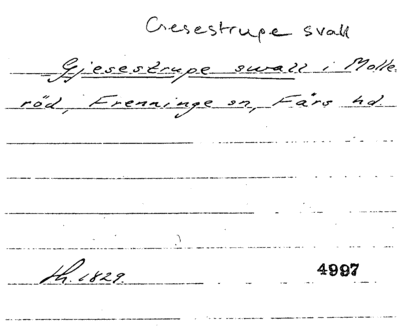 Gesestrupe svall
Gjesestrupe swall i Molle-
röd, Frenninge sn, Färs hd
th. 1829. 4997